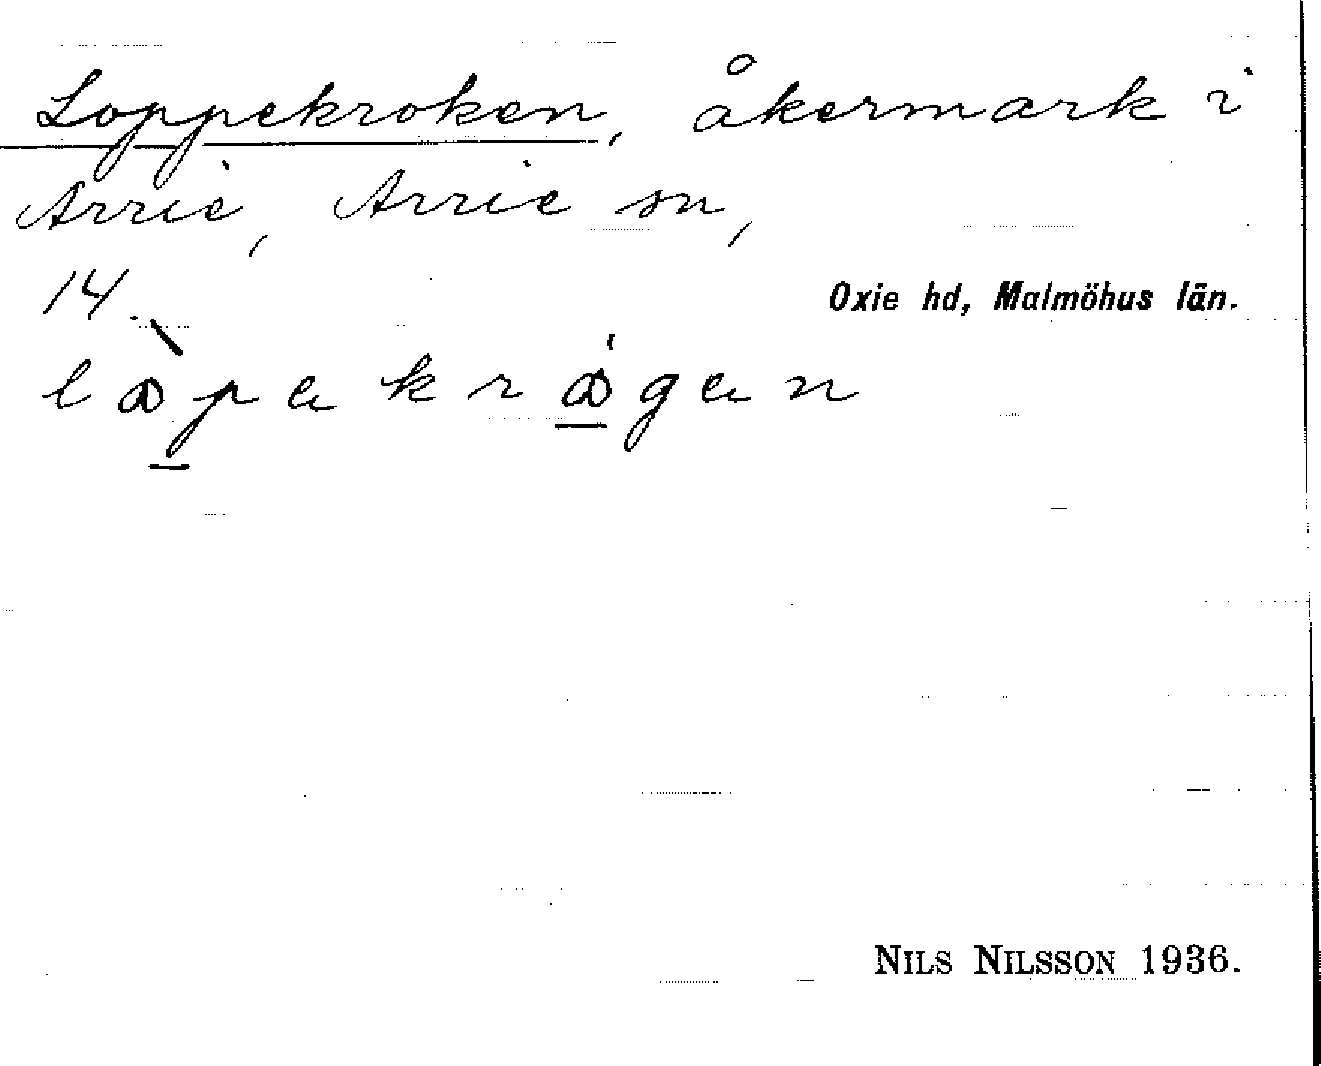 Loppekroken, åkermark i
Arrie, Arrie sn,
14.
Oxie hd, Malmöhus län.
NILS NILSSON 1936.